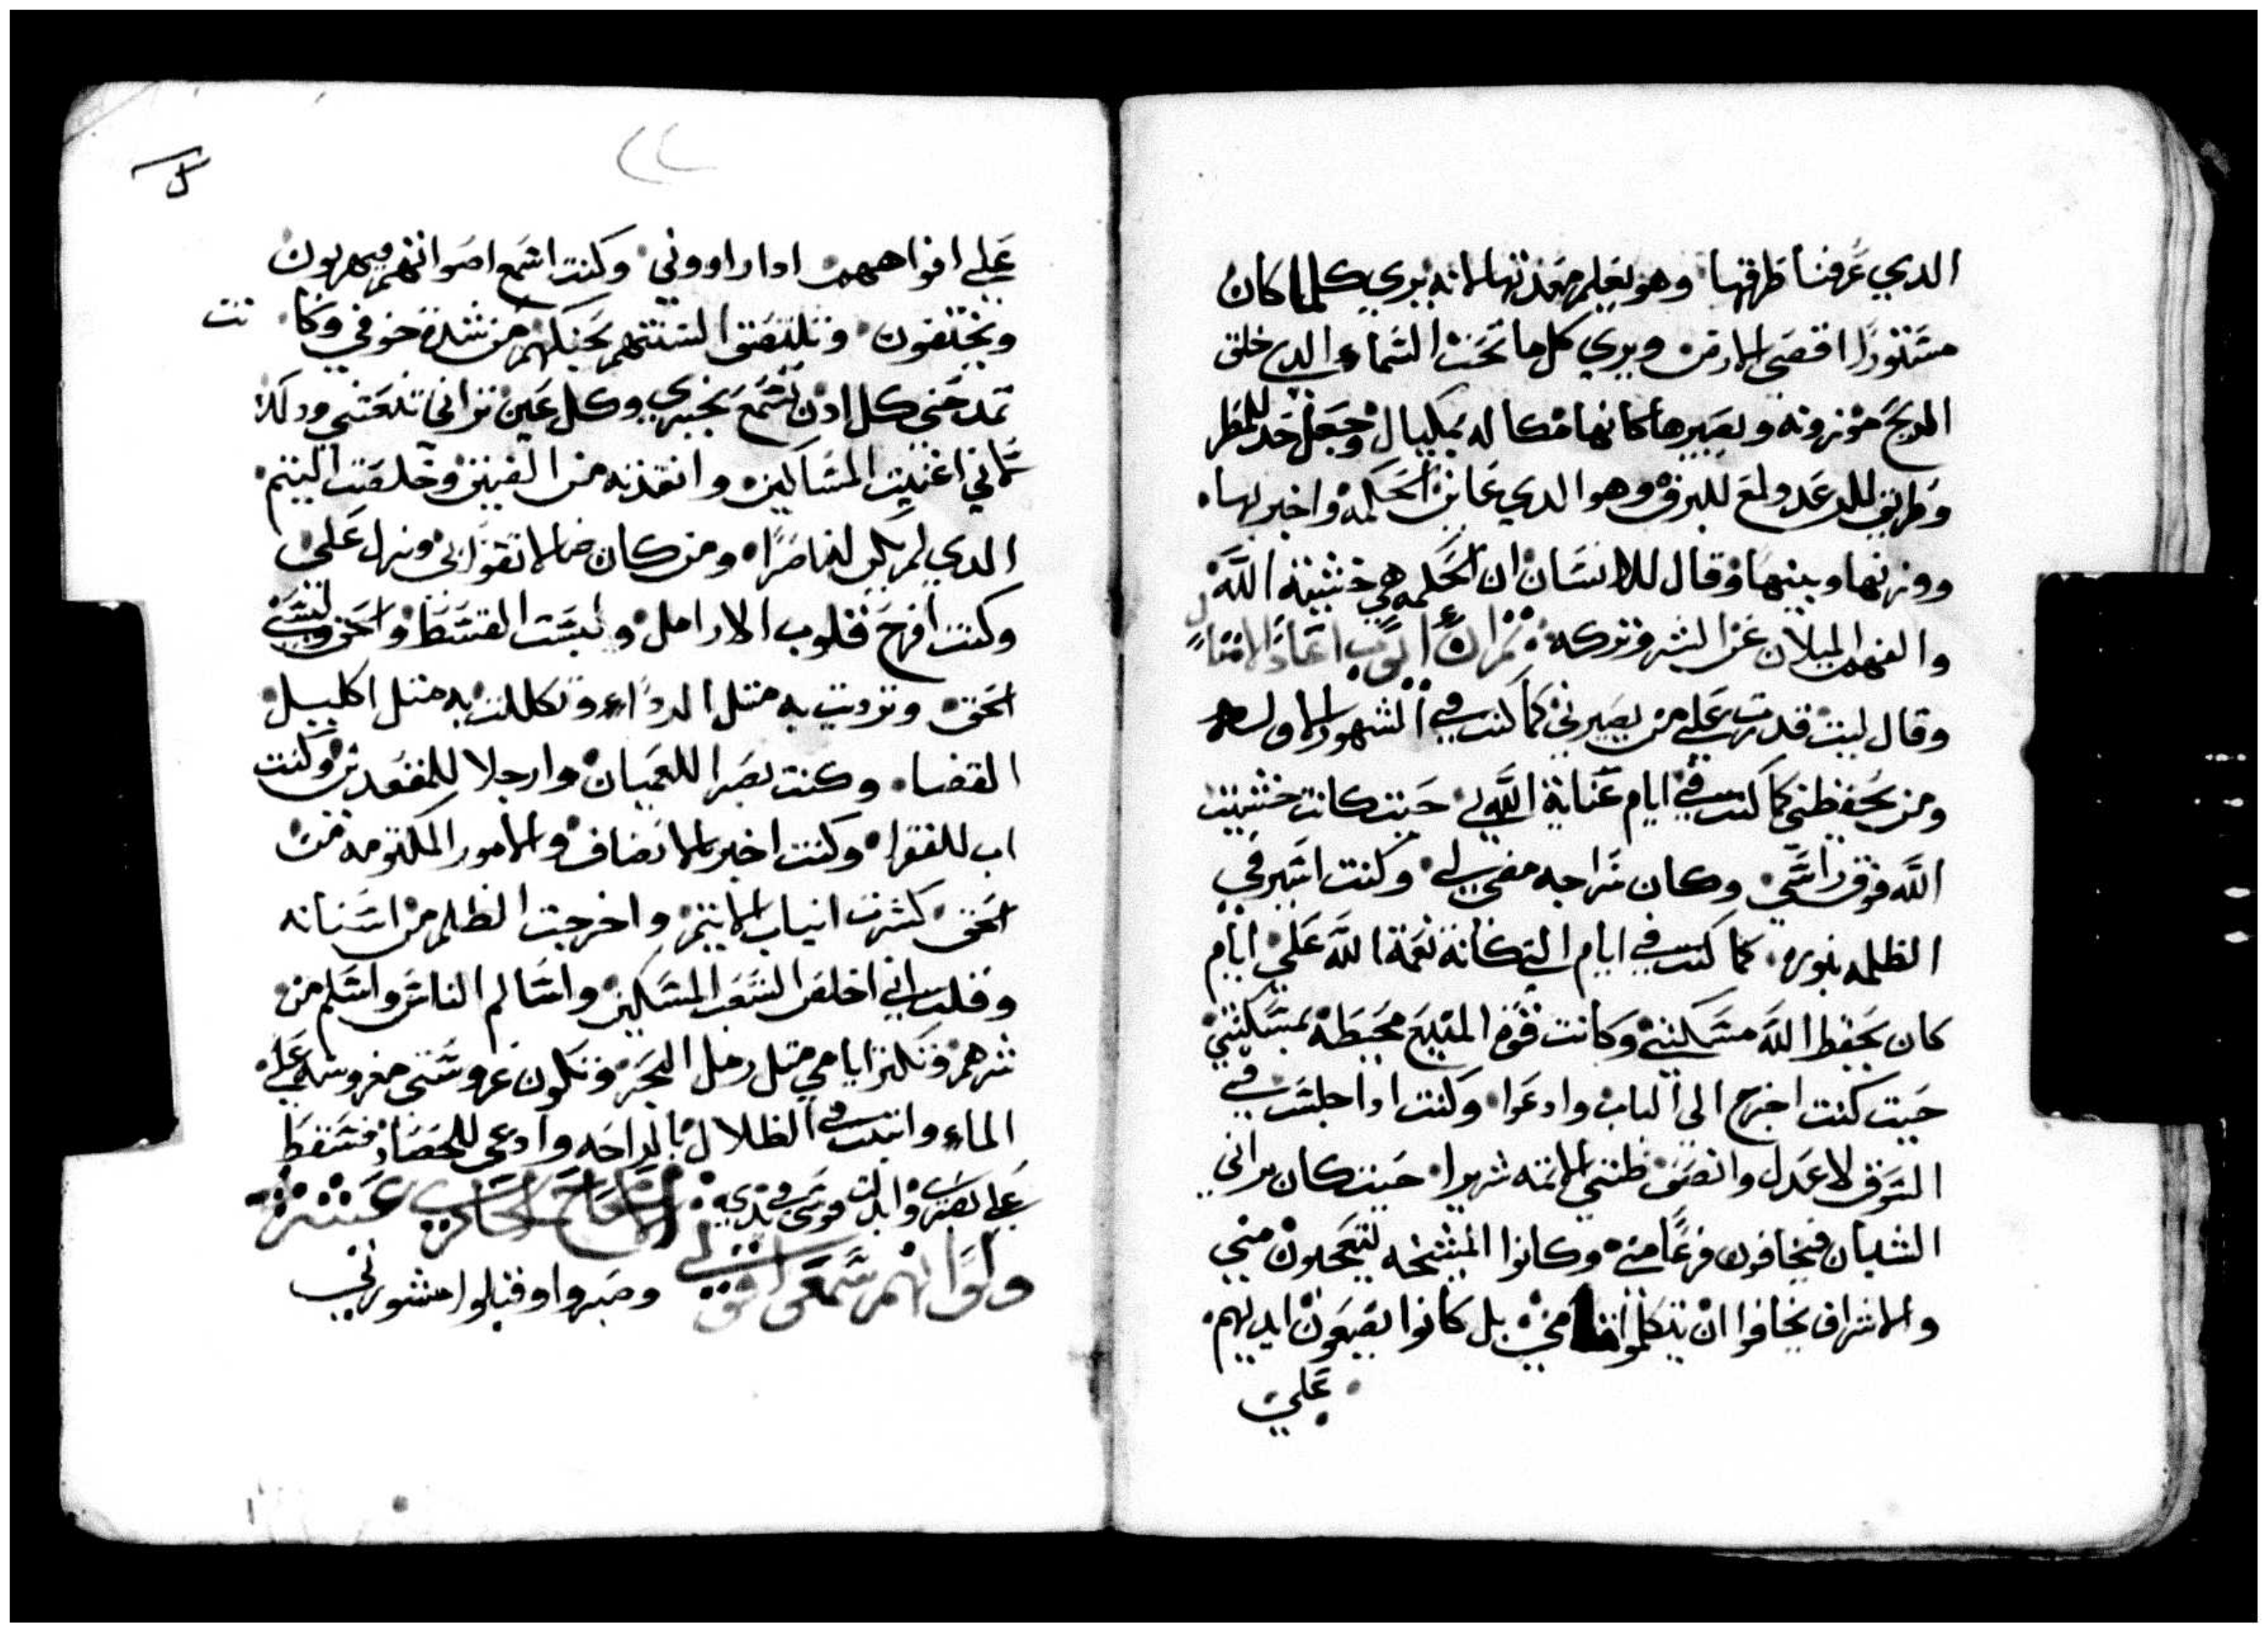 الدي عرفنا طرقها وهو يعلم معدنها لانه يري كلما كان
مستورا اقصي الارض ويري كل ما تحت السماء الدي خلق
الريح موزونه وبصيرها كانها مكاله بمكيال وجعل حد للمطر
وطريق للرعد ولمع للبرق وهو الدي عاين الحكمه واخبر بها
ووزنها وبينها وقال للانسان ان الحكمه هي خشية الله
والفهم الميلان عن الشر وتركه ثم ان ايوب اعاد الامثال
وقال ليت قدرت علي من يصيرني كما كنت في الشهور الاوله
ومن يحفظني كما كنت في ايام عناية الله لي حيت كانت خشيت
الله فوق راسي وكان سراجه مضي لي وكنت اسير في
الظلمه بنوره كما كنت في ايام التي كانة نعمة الله علي ايام
كان يحفظ الله مسكنتي وكانت قوم المنيع محيطه بمسكنتي
حيت كنت اخرج الى الباب وادعوا وكنت ادا جلست في
السوق لاعدل وانصف ظنتني الامته شريرا حيت كان يراني
الشبان فيخافون فزعا مني وكانوا المشيخه يتعجبون مني
والاشراف يخافوا ان يتكلموا مني بل كانوا يضعون ايديهم
علي
علي افواههم ادا راووني وكنت اسمع اصواتهم فيهربون
ويختفون وتلتصق السنتهم بحنكهم من شدة خوفي وكانت
تمدحني كل ادن تسمع بخبري وكل عين تراني تنعتني ودلك
اني اغنيت المساكين وانقدته من الضيق وخلصت اليتيم
الدي لم يكن له ناصرا ومن كان ضالا تقوا بي ونزل علي
وكنت افرح قلوب الارامل ولبست القسط واحق ولبسني
الحق وتزديت به متل الرداء وتكللت به متل اكليل
القضا وكنت بصرا للعميان وارجلا للمقعدين وكنت
اب للفقرا وكنت اخبر بالانصاف والامور المكتومه من
الحق كسرت انياب الاتيم واخرجت الظلم من اسنانه
وقلت اني اخلص الشعب المسكين واسالم الناس واسلم من
شرهم وتكتر ايامي متل رمل البحر وتكون عروستي مغروسه علي
الماء وانبت في الظلال بالراحه وادعى للحصاد فتسقط
علي نصرت وابدلت قوسي في يدي الاصحاح الحادي عشر
ولو انهم سمعوا قولي وصبروا وقبلوا مشورتي